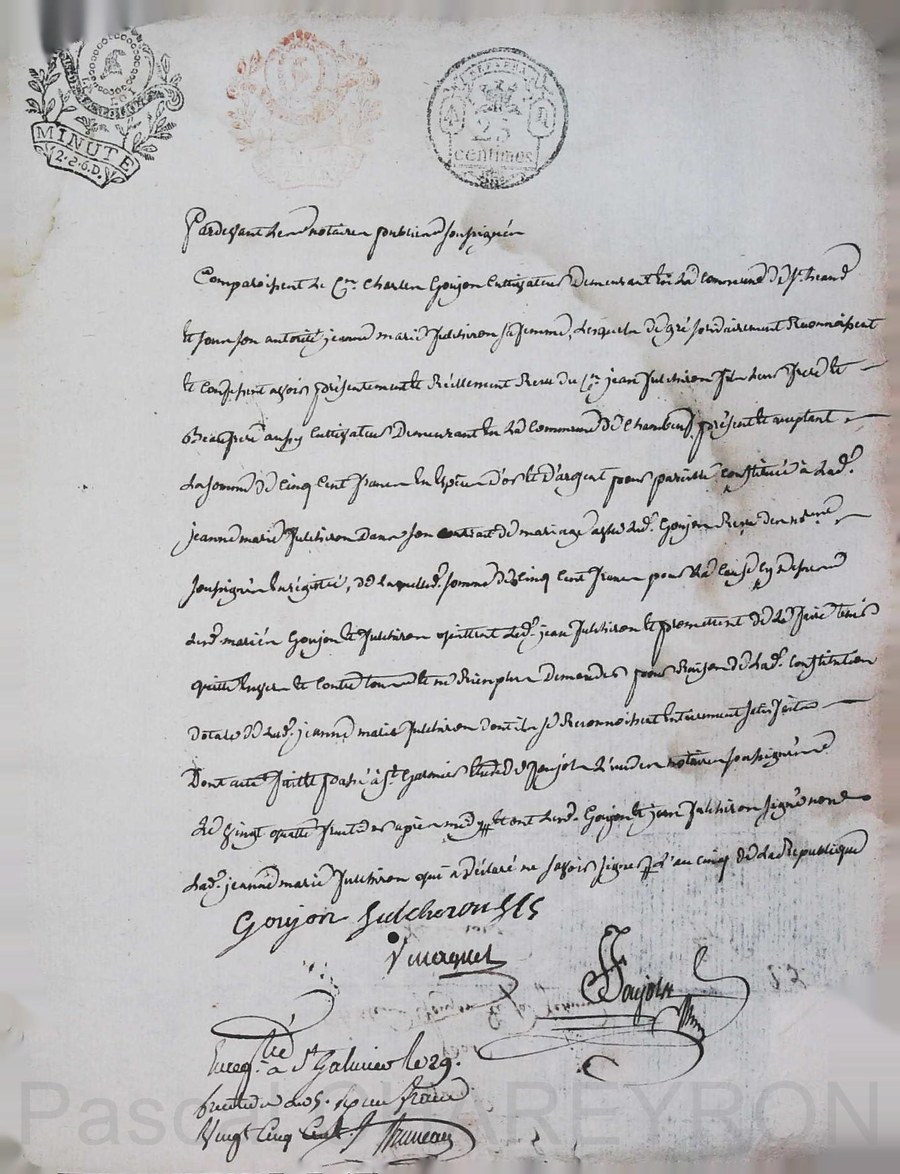 LA LOI
MINUTE
2.2.6.D.
REP. FRA.
25
centimes
Pardevant les notaires publics soussignés
Comparoissent le Cen. Charles Goujon Cultivateur Demeurant en la commune de St. heand
et sous son autorité jeanne marie fulchiron sa femme, lesquels de gré solidairement Reconnoissent
et confessent avoir présentement et Réellement Recu du Cn. jean fulchiron fils leur frere et
Beaufrere aussy Cultivateur Demeurant en la Commune de Chambeuf présent et acceptant
La somme de Cinq Cent francs en Espèces d'or et d'argent pour pareille constituée à Lad.
jeanne marie fulchiron dans son contrait de mariage avec led. Goujon Recu des notaires
soussignés enrégistré, de laquelle somme de Cinq Cent francs
Lesd. mariés Goujon et fulchiron quittent led. jean fulchiron et promettent de le faire tenir
quitte envers et contre tous et ne Rien plus demander pour Raison de Lad. Constitution
dotale de Lad. jeanne marie fulchiron dont ils se Reconnoissent entierement satisfaits
Dont acte fait et passé à St. Galmier Etude de Soujols L'un des notaires soussignés
Le vingt quatre fructidor après midy et ont Lesd. Goujon et jean fulchiron signé non
Lad. jeanne marie fulchiron qui a déclaré ne savoir signer L'an cinq de La Republique
Goujon fulcheron
Soujols
Enregtré à St Galmier le 29.
fructidor an 5. Reçu francs
Vingt Cinq Cent. Bruneau
Pascal CHAREYRON